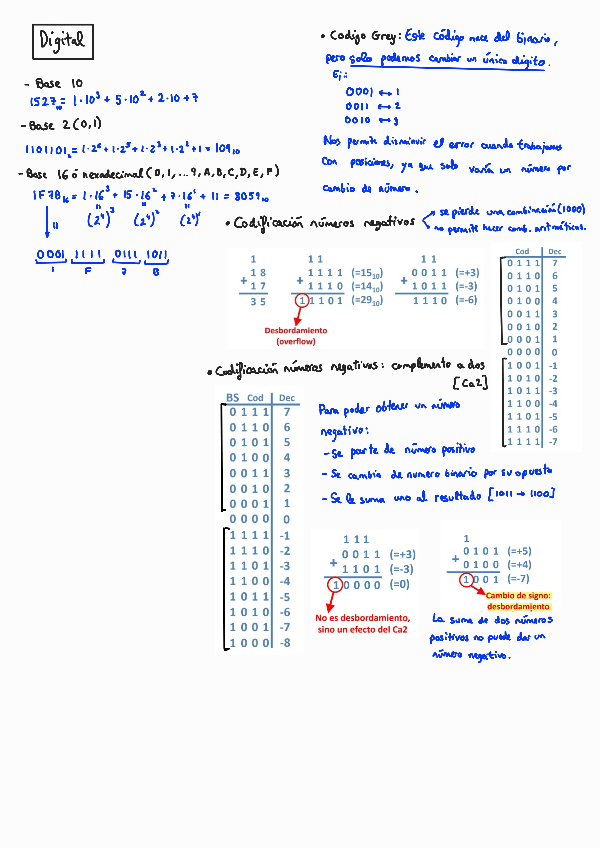 Digital
- Base 10
1527₁₀ = 1·10³ + 5·10² + 2·10 + 7
- Base 2 (0,1)
1101101₂ = 1·2⁶ + 1·2⁵ + 1·2³ + 1·2² + 1 = 109₁₀
- Base 16 ó hexadecimal (0, 1, ... 9, A, B, C, D, E, F)
1F7B₁₆ = 1·16³ + 15·16² + 7·16¹ + 11 = 8059₁₀
11 (2⁴)³ (2⁴)² (2⁴)¹
0001 1111 0111 1011
1 F 7 B
• Codigo Grey: Este código nace del binario,
pero solo podemos cambiar un único digito.
Ej:
0001 ↔ 1
0011 ↔ 2
0010 ↔ 3
Nos permite disminuir el error cuando trabajamos
con posiciones, ya que solo varía un número por
cambio de número.
• Codificación números negativos
se pierde una combinación (1000)
no permite hacer comb. aritméticas.
1
1 8
+ 1 7
3 5
1 1
1 1 1 1 (=15₁₀)
+ 1 1 1 0 (=14₁₀)
1 1 1 0 1 (=29₁₀)
Desbordamiento
(overflow)
1 1
0 0 1 1 (=+3)
+ 1 0 1 1 (=-3)
1 1 1 0 (=-6)
Cod Dec
0 1 1 1 7
0 1 1 0 6
0 1 0 1 5
0 1 0 0 4
0 0 1 1 3
0 0 1 0 2
0 0 0 1 1
0 0 0 0 0
1 0 0 1 -1
1 0 1 0 -2
1 0 1 1 -3
1 1 0 0 -4
1 1 0 1 -5
1 1 1 0 -6
1 1 1 1 -7
• Codificación números negativos: complemento a dos
[Ca2]
BS Cod Dec
0 1 1 1 7
0 1 1 0 6
0 1 0 1 5
0 1 0 0 4
0 0 1 1 3
0 0 1 0 2
0 0 0 1 1
0 0 0 0 0
1 1 1 1 -1
1 1 1 0 -2
1 1 0 1 -3
1 1 0 0 -4
1 0 1 1 -5
1 0 1 0 -6
1 0 0 1 -7
1 0 0 0 -8
Para poder obtener un número
negativo:
- Se parte de número positivo
- Se cambia de numero binario por su opuesto
- Se le suma uno al resultado [1011 → 1100]
1 1 1
0 0 1 1 (=+3)
+ 1 1 0 1 (=-3)
1 0 0 0 0 (=0)
No es desbordamiento,
sino un efecto del Ca2
1
0 1 0 1 (=+5)
+ 0 1 0 0 (=+4)
1 0 0 1 (=-7)
Cambio de signo:
desbordamiento
La suma de dos números
positivos no puede dar un
número negativo.